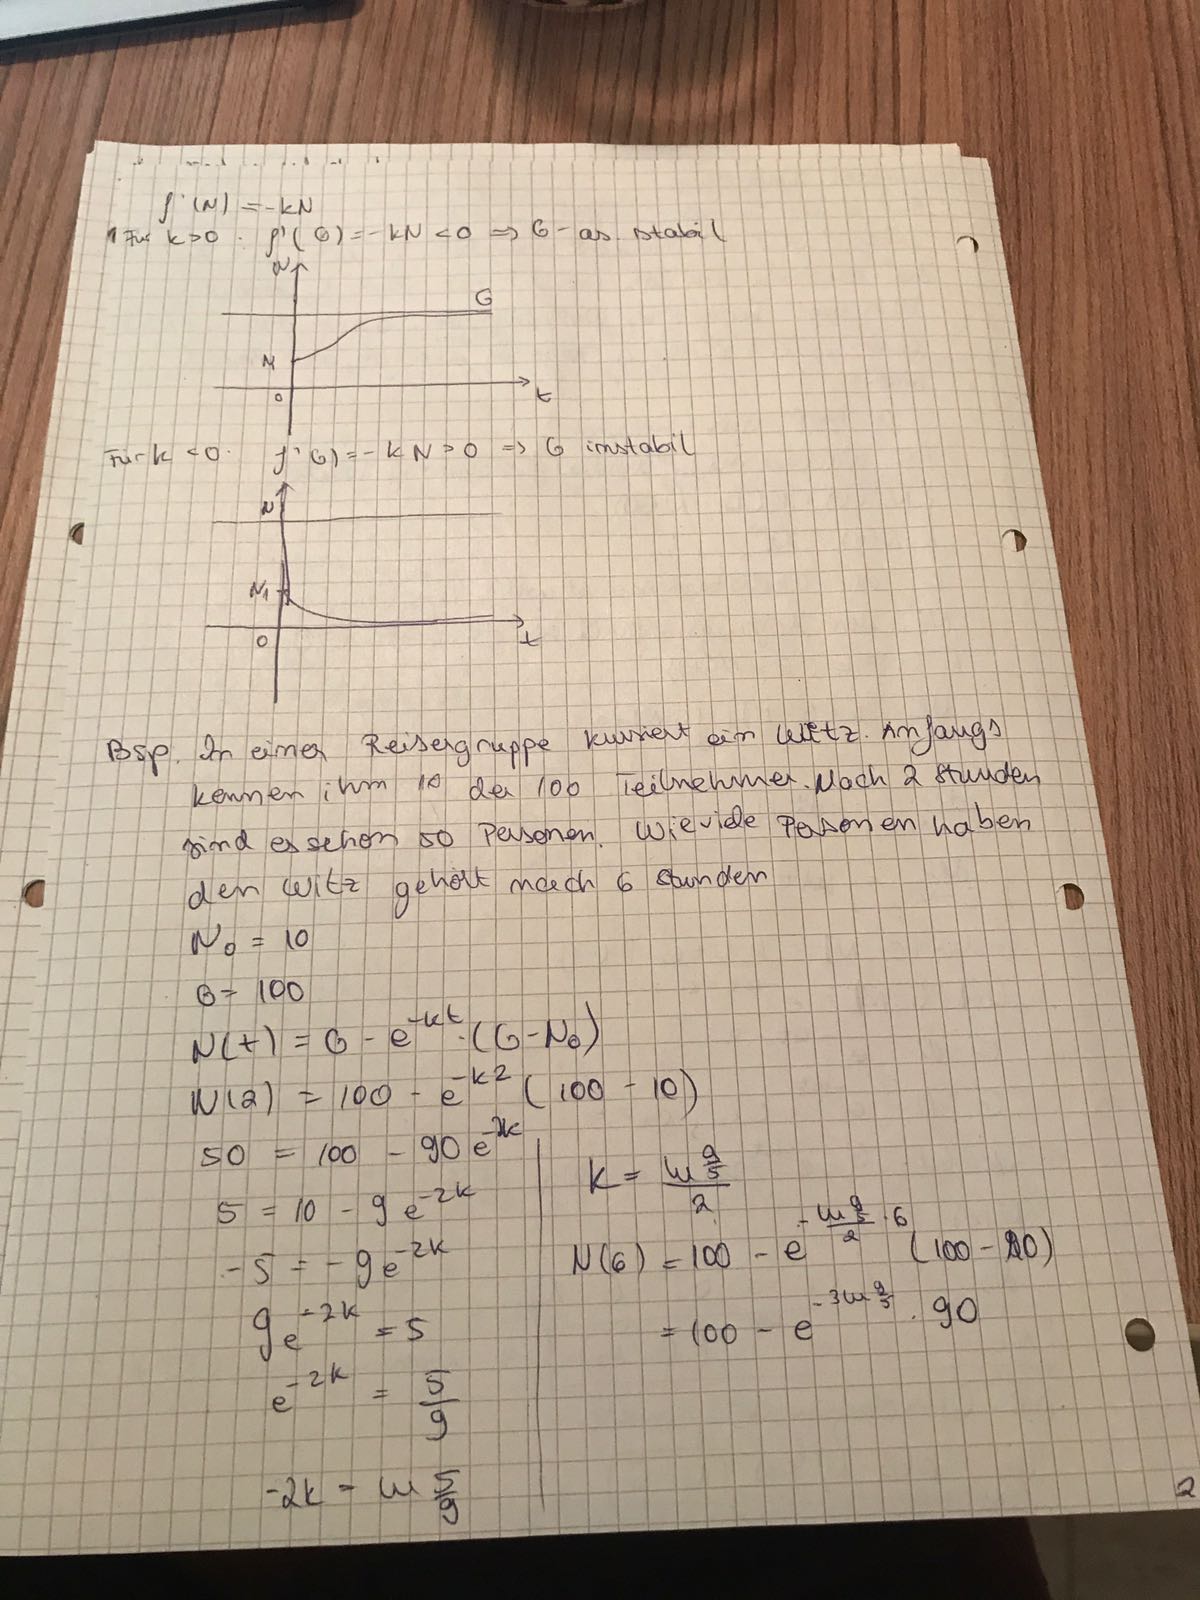 f'(N) = -kN
Für k>0. f'(G) = -kN < 0 => G - as. stabil
N
G
N
0
t
Für k < 0. f'(G) = -kN > 0 => G instabil
N
N1
0
t
Bsp. In einer Reisergruppe kursiert ein Witz. Anfangs
kennen ihm 10 der 100 Teilnehmer. Nach 2 Stunden
sind es schon 50 Personen. Wieviele Personen haben
den Witz gehört nach 6 Stunden
N₀ = 10
G = 100
N(t) = G - e^{-kt} · (G - N₀)
N(2) = 100 - e^{-k2} (100 - 10)
50 = 100 - 90 e^{-2k}
5 = 10 - 9e^{-2k}
-5 = -9e^{-2k}
9e^{-2k} = 5
e^{-2k} = 5/9
-2k = ln 5/9
k = (ln 9/5)/2
N(6) = 100 - e^{-(ln 9/5)/2 · 6} (100 - 10)
= 100 - e^{-3 ln 9/5} · 90
2